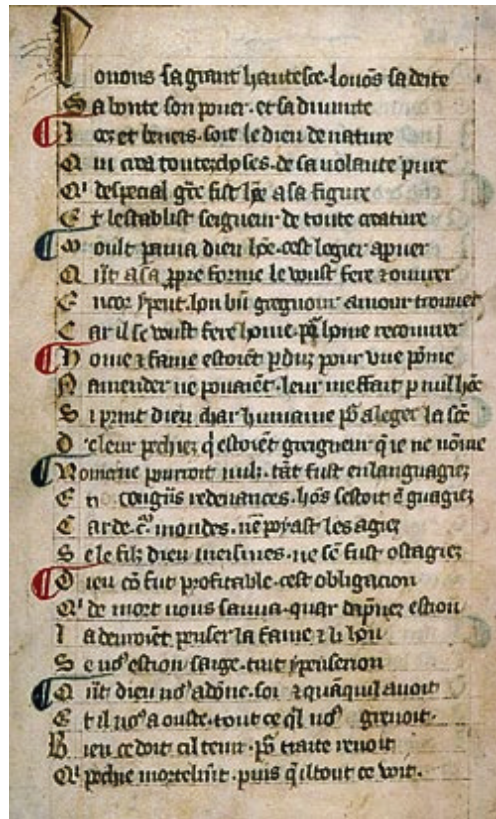 Louons sa grant hautesce. louōs sa deite
Sa bonte son pouer. et sa diuinite
Loez et beneis. soit le dieu de nature
Qui crea toutez choses. de sa volante pure
Qͥ despecial gͬce fist hōe a sa figure
Et lestablist seigneur de toute creature
Moult pama dieu hōe. cest legier a prouer
Qūt a sa ꝓpre forme le voust fere ⁊ ouurer
Encor ypeut. lon bn̄ gregnour amour trouuer
Car il se voust fere home. po᷑ home recouurer
Home ⁊ fame estoiēt ꝑduz pour vne pōme
Namender ne pouaiēt. leur meffait ꝑ nul hōe
Si print dieu char humaine po᷑ aleger la sōe
De leur pechiez q̄ estoiēt greigneur q̄ ie ne nōme
Nomeque pourroit nulz. tāt fust en languagiez
En redeuances. hōs sestoit ē guagiez
Car de. mondes. nē poyast les agiez
Se le filz dieu meismes. ne sē fust ostagiez
Dieu cō fut profitable. cest obligacion
Qͥ de mort nous sauua. quar dāpnez estion
Ia deuroiēt penser la fame ⁊ li hōn
Se noꝰ estion saige. tuit ypenserion
Qūt dieu noꝰ a dōne. soi ⁊ quāquil auoit
Et il noꝰ a ouste. tout ce qͥl noꝰ greuoit.
Bien ce doit cil tenir. po᷑ traite renoit
Qͥ pechie mortelmt̄. puis q̄ il tout ce voit.